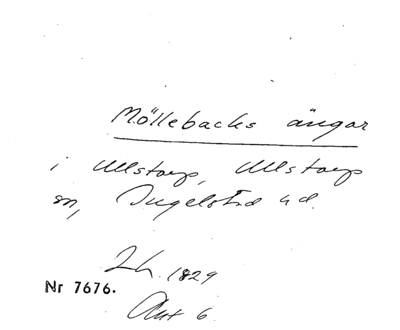 Möllebacks ängar
i Ullstorp, Ullstorp
sn, Ingelstad hd.
Lh. 1829
Nr 7676.
Akt 6